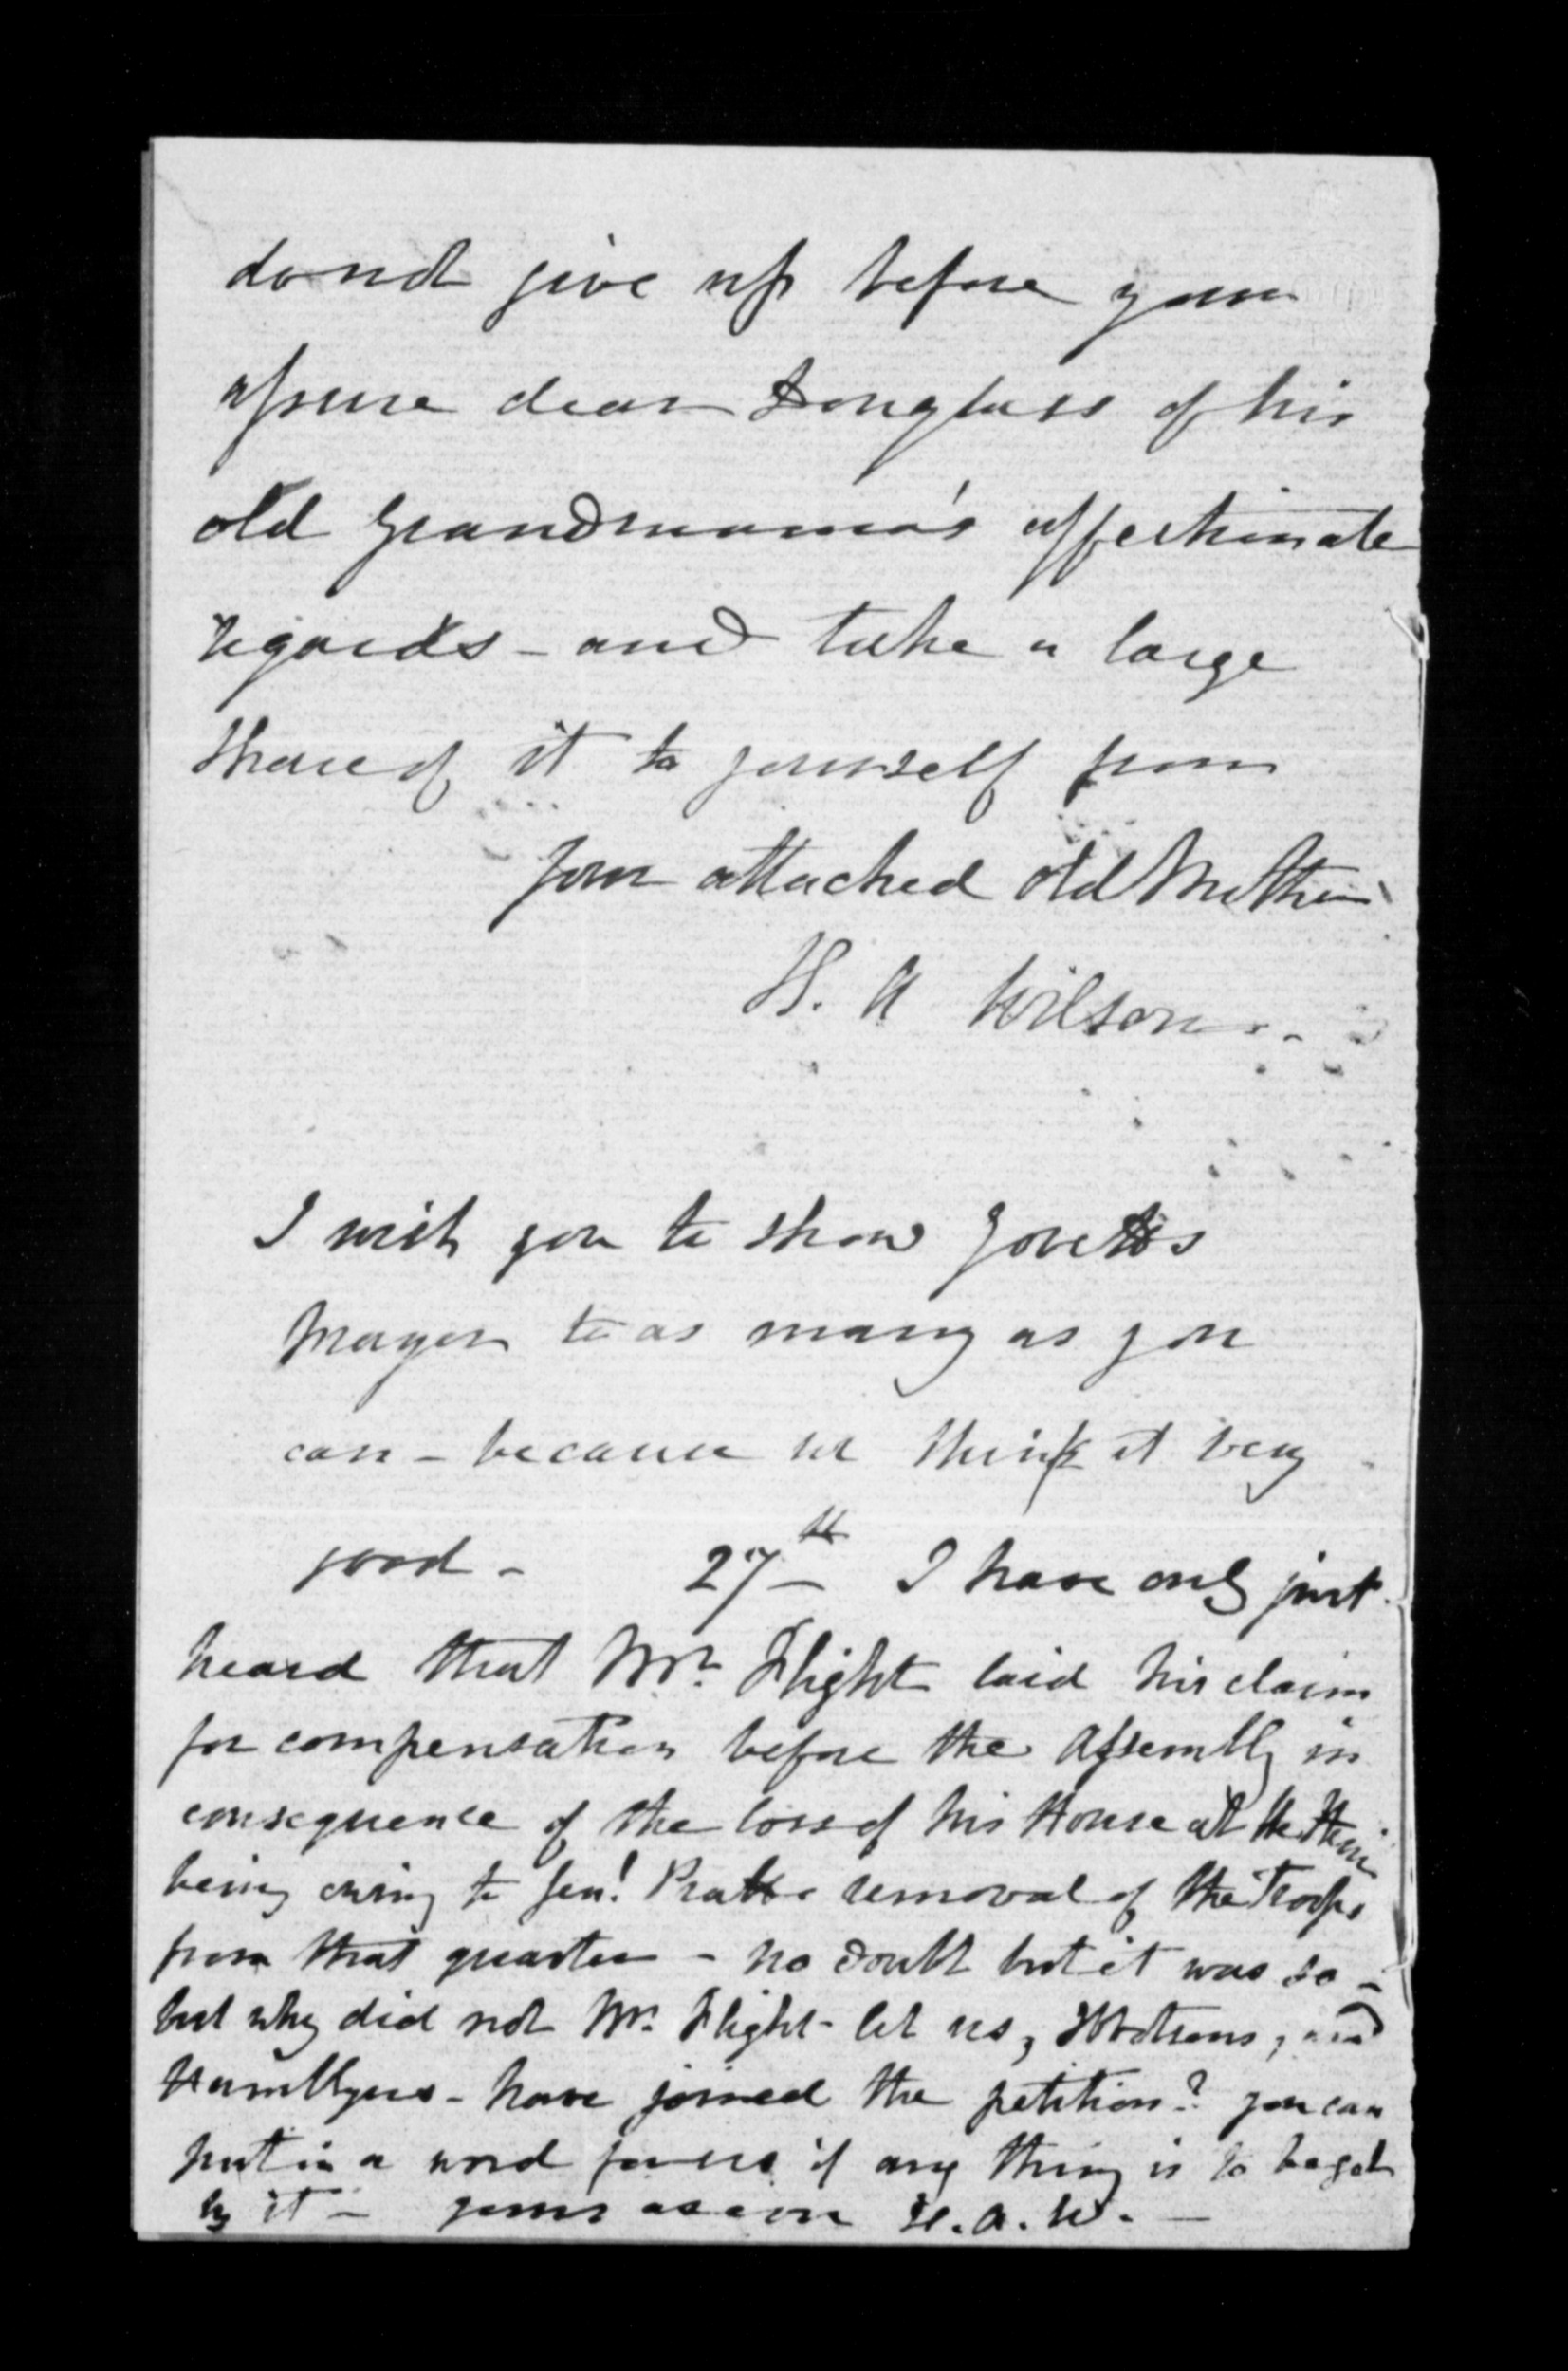 do not give up before your
assure dear Douglass of his
old Grandmama's affectionate
regards - and take a large
share of it to yourself from
your attached old Mother
H. A Wilson -
I wish you to show
to as many as you
can - because we think it very
good - 27th I have only just
heard that Mr. Flight laid his claim
for compensation before the Assembly in
consequence of the loss of his House at the
being owing to Genl. Pratts removal of the Troops
from that quarter - no doubt but it was so -
but why did not Mr. Flight - let us, and
have joined the petition? you can
put in a word for us if any thing is to be got
by it - yours as ever H. A. W. -